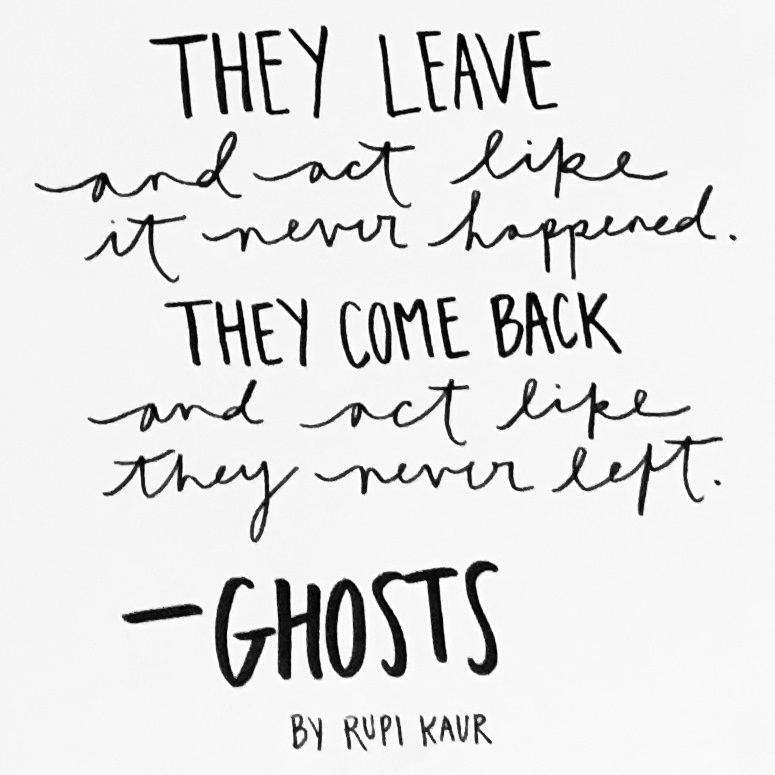 THEY LEAVE
and act like
it never happened.
THEY COME BACK
and act like
they never left.
—GHOSTS
BY RUPI KAUR